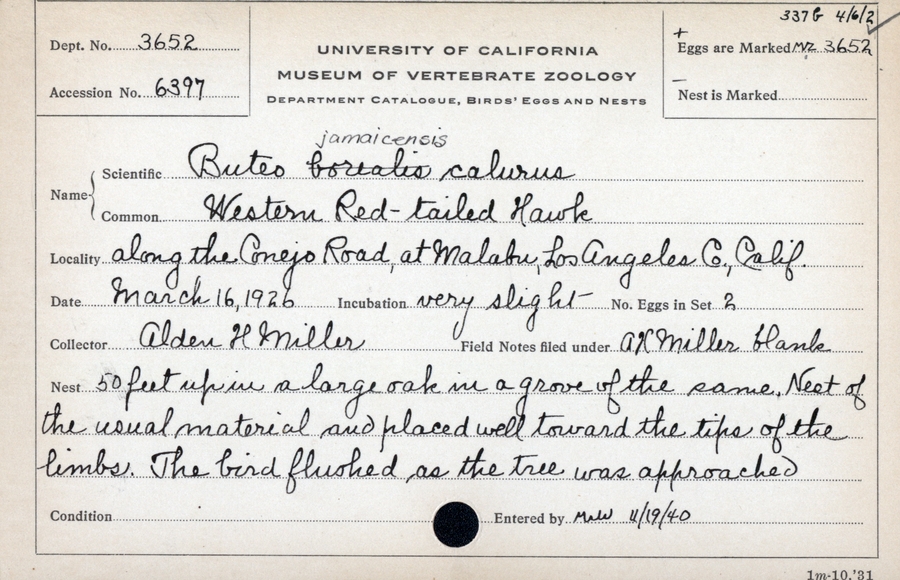 337G 4/6/2
Dept. No. 3652
UNIVERSITY OF CALIFORNIA
+
Eggs are Marked MVZ 3652
MUSEUM OF VERTEBRATE ZOOLOGY
Accession No. 6397
DEPARTMENT CATALOGUE, BIRDS' EGGS AND NESTS
—
Nest is Marked
jamaicensis
Name { Scientific Buteo borealis calurus
Common Western Red-tailed Hawk
Locality along the Conejo Road, at Malabu, Los Angeles Co., Calif.
Date March 16, 1926 Incubation very slight No. Eggs in Set 2
Collector Alden H Miller Field Notes filed under AH Miller blank
Nest 50 feet up in a large oak in a grove of the same. Nest of
the usual material and placed well toward the tips of the
limbs. The bird flushed as the tree was approached
Condition Entered by MWW 11/19/40
1m-10,'31